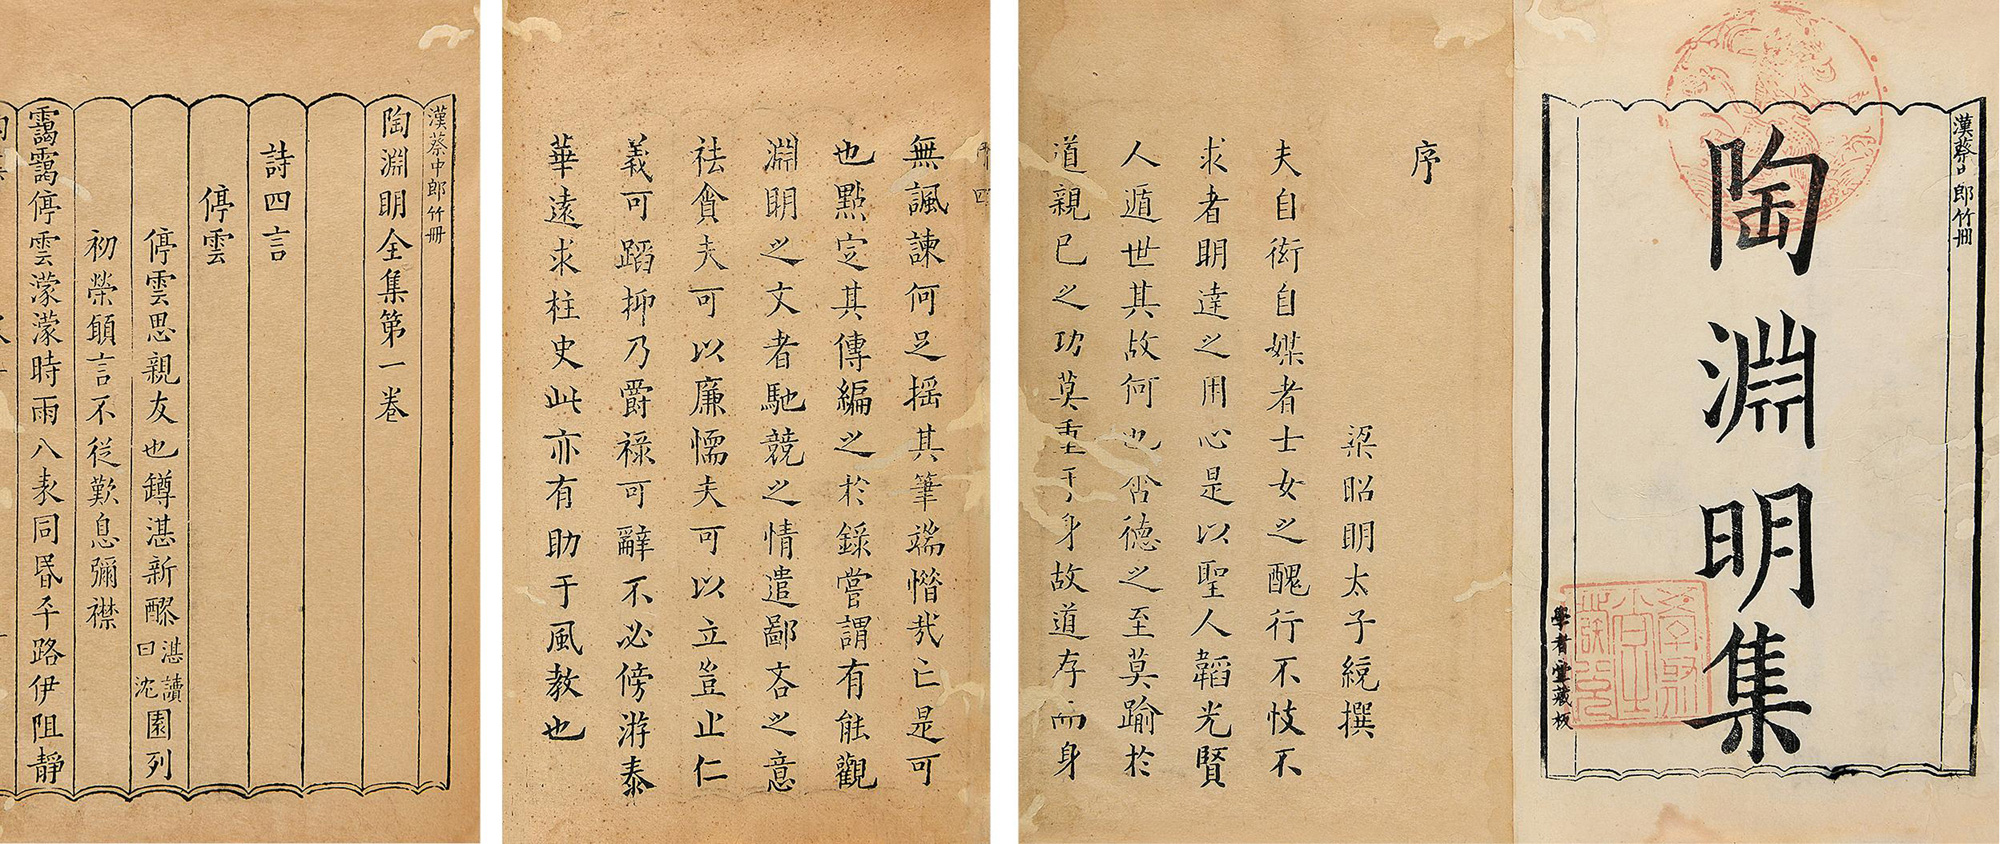 漢蔡中郎竹冊
陶淵明集
學者堂藏板
序
梁昭明太子統撰
夫自衒自媒者士女之醜行不忮不
求者明達之用心是以聖人韜光賢
人遁世其故何也含德之至莫踰於
道親已之功莫重于身故道存而身
無諷諫何足搖其筆端惜哉亡是可
也點定其傳編之於錄嘗謂有能觀
淵明之文者馳競之情遣鄙吝之意
祛貪夫可以廉懦夫可以立豈止仁
義可蹈抑乃爵祿可辭不必傍游泰
華遠求柱史此亦有助于風教也
漢蔡中郎竹冊
陶淵明全集第一卷
詩四言
停雲
停雲思親友也罇湛新醪湛讀曰沈園列
初榮願言不從歎息彌襟
靄靄停雲濛濛時雨八表同昏平路伊阻靜